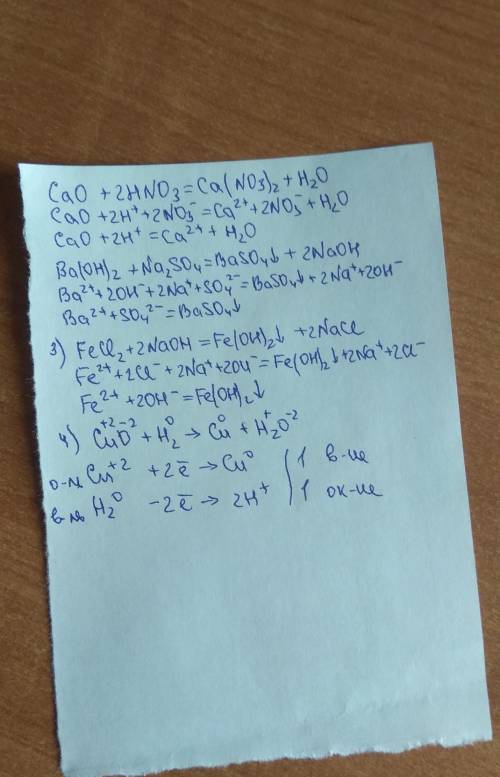 CaO + 2HNO₃ = Ca(NO₃)₂ + H₂O
CaO + 2H⁺ + 2NO₃⁻ = Ca²⁺ + 2NO₃⁻ + H₂O
CaO + 2H⁺ = Ca²⁺ + H₂O
Ba(OH)₂ + Na₂SO₄ = BaSO₄↓ + 2NaOH
Ba²⁺ + 2OH⁻ + 2Na⁺ + SO₄²⁻ = BaSO₄↓ + 2Na⁺ + 2OH⁻
Ba²⁺ + SO₄²⁻ = BaSO₄↓
3) FeCl₂ + 2NaOH = Fe(OH)₂↓ + 2NaCl
Fe²⁺ + 2Cl⁻ + 2Na⁺ + 2OH⁻ = Fe(OH)₂↓ + 2Na⁺ + 2Cl⁻
Fe²⁺ + 2OH⁻ = Fe(OH)₂↓
4) Cu⁺²O⁻² + H₂⁰ → Cu⁰ + H₂⁺O⁻²
о-ль Cu⁺² + 2ē → Cu⁰ | 1 в-ие
в-ль H₂⁰ - 2ē → 2H⁺ | 1 ок-ие